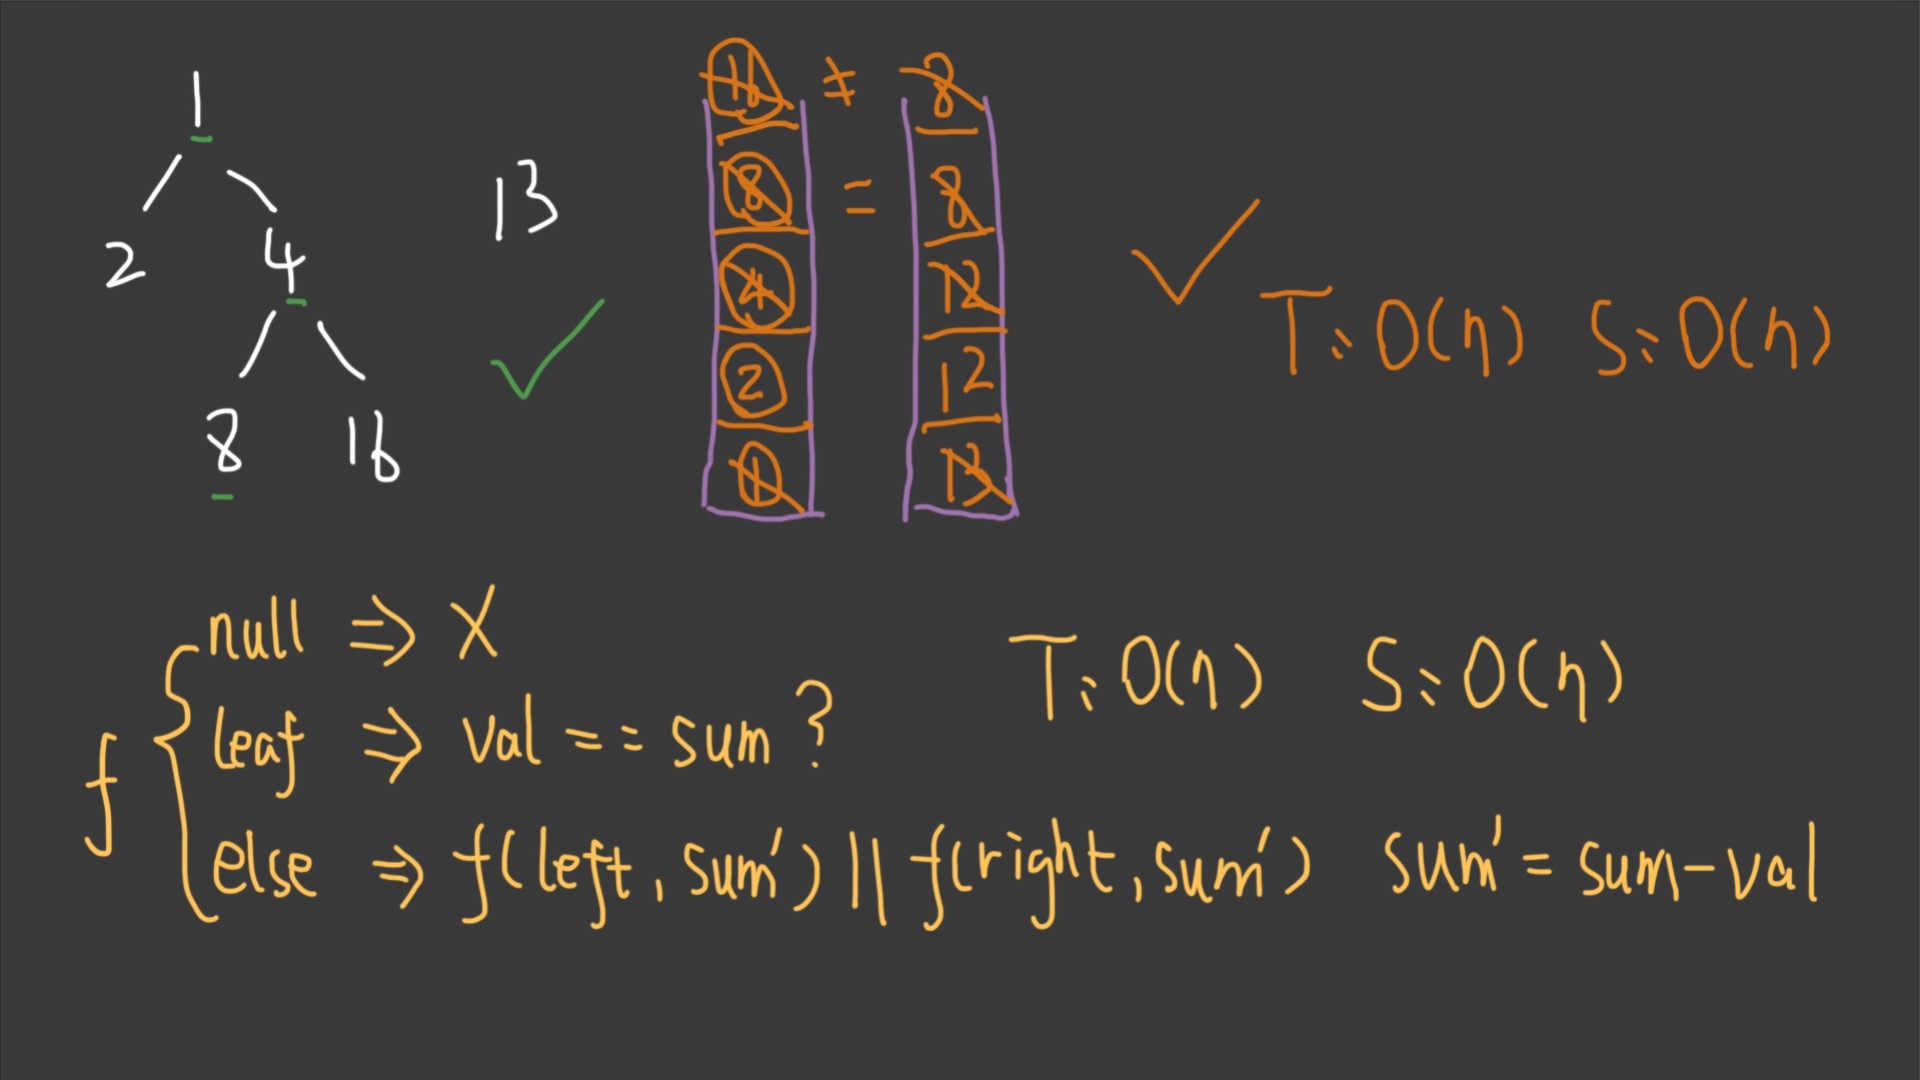 1
2 4
8 16
13
16 ≠ 8
8 = 8
4 12
2 12
1 13
T: O(n) S: O(n)
null ⇒ X
T: O(n) S: O(n)
f leaf ⇒ val == sum ?
else ⇒ f(left, sum') || f(right, sum') sum' = sum - val